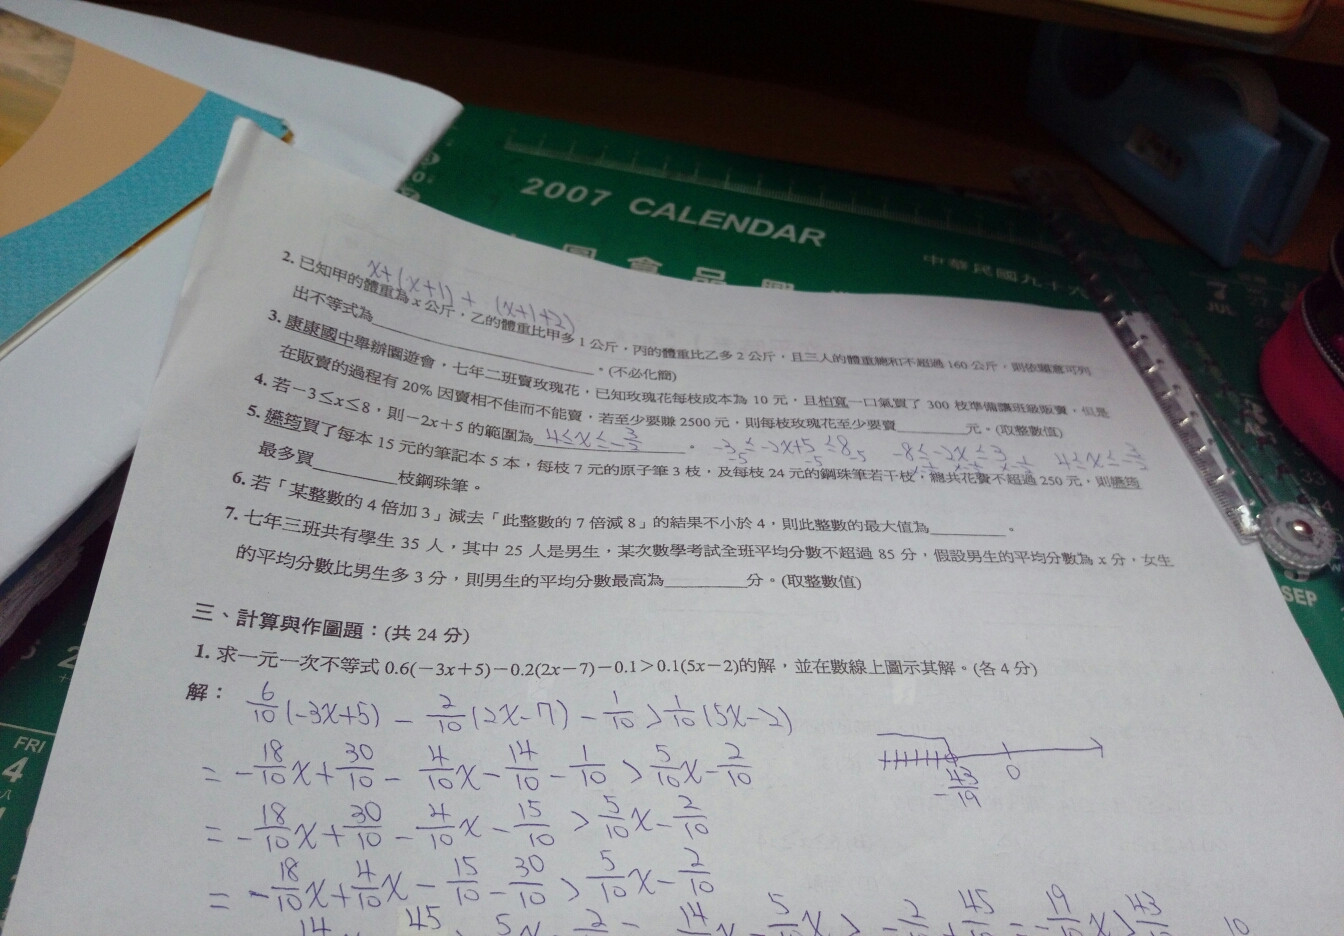 2007 CALENDAR
中華民國九十六
x+(x+1)+(x+1+2)
2. 已知甲的體重為 x 公斤，乙的體重比甲多 1 公斤，丙的體重比乙多 2 公斤，且三人的體重總和不超過 160 公斤，則依題意可列
出不等式為__________。(不必化簡)
3. 康康國中舉辦園遊會，七年二班賣玫瑰花，已知玫瑰花每枝成本為 10 元，且柏寬一口氣買了 300 枝準備讓班級販賣，但是
在販賣的過程有 20% 因賣相不佳而不能賣，若至少要賺 2500 元，則每枝玫瑰花至少要賣__________元。(取整數值)
4. 若 −3≤x≤8，則 −2x+5 的範圍為 4≤x≤-3/2 。 -3-5≤-2x+5-5≤8-5 -8≤-2x≤3 4≤x≤-3/2
5. 嬿筠買了每本 15 元的筆記本 5 本，每枝 7 元的原子筆 3 枝，及每枝 24 元的鋼珠筆若干枝，總共花費不超過 250 元，則嬿筠
最多買__________枝鋼珠筆。
6. 若「某整數的 4 倍加 3」減去「此整數的 7 倍減 8」的結果不小於 4，則此整數的最大值為__________。
7. 七年三班共有學生 35 人，其中 25 人是男生，某次數學考試全班平均分數不超過 85 分，假設男生的平均分數為 x 分，女生
的平均分數比男生多 3 分，則男生的平均分數最高為__________分。(取整數值)
三、計算與作圖題：(共 24 分)
1. 求一元一次不等式 0.6(−3x+5)−0.2(2x−7)−0.1>0.1(5x−2)的解，並在數線上圖示其解。(各 4 分)
解： 6/10(-3x+5) - 2/10(2x-7) - 1/10 > 1/10(5x-2)
= -18/10x + 30/10 - 4/10x - 14/10 - 1/10 > 5/10x - 2/10
-43/19 0
= -18/10x + 30/10 - 4/10x - 15/10 > 5/10x - 2/10
= -18/10x + 4/10x - 15/10 - 30/10 > 5/10x - 2/10
14 45 5 2 = 14 5/10x > -2/10 + 45/10 = -19/10x > 43 10
JUL
SEP
FRI
4